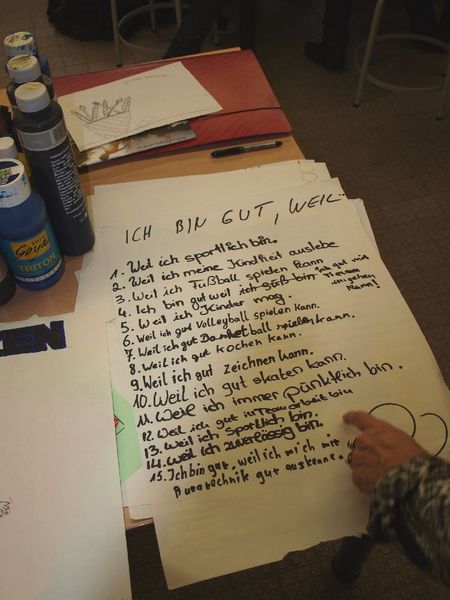 ICH BIN GUT, WEIL...
1. Weil ich sportlich bin.
2. Weil ich meine Kindheit auslebe
3. Weil ich Fußball spielen kann
4. Ich bin gut weil ich süß bin ich gut mit Tieren umgehen kann!
5. Weil ich Kinder mag.
6. Weil ich gut Volleyball spielen kann.
7. Weil ich gut Basketball spielen kann.
8. Weil ich gut kochen kann.
9. Weil ich gut zeichnen kann.
10. Weil ich gut skaten kann.
11. Weil ich immer pünktlich bin.
12. Weil ich gut in Teamarbeit bin
13. Weil ich sportlich bin.
14. Weil ich zuverlässig bin.
15. Ich bin gut, weil ich mich mit
Bürotechnik gut auskenne.
ZEN
SOLO
Goya
TRITON